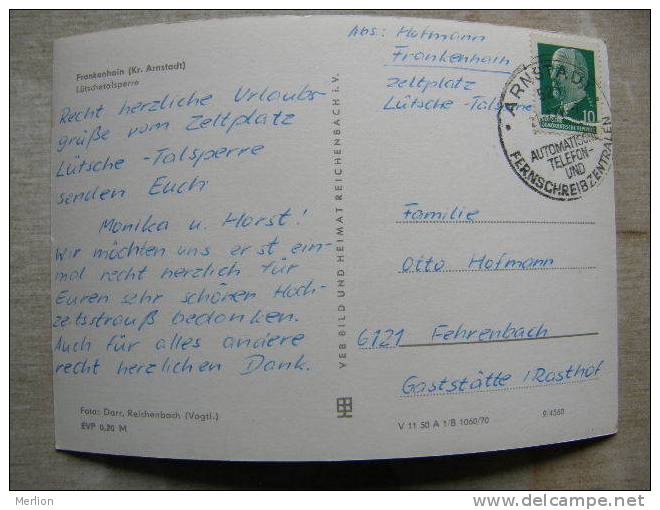 Frankenhain (Kr. Arnstadt)
Lütschetalsperre
Recht herzliche Urlaubs-
grüße vom Zeltplatz
Lütsche-Talsperre
senden Euch
Monika u. Horst!
Wir möchten uns erst ein-
mal recht herzlich für
Euren sehr schönen Hoch-
zeitsstrauß bedanken.
Auch für alles andere
recht herzlichen Dank.
Foto: Darr, Reichenbach (Vogtl.)
EVP 0,20 M
VEB BILD UND HEIMAT REICHENBACH i. V.
Abs: Hofmann
Frankenhain
Zeltplatz
Lütsche-Talsperre
ARNSTADT
10
DEUTSCHE
DEMOKRATISCHE REPUBLIK
AUTOMATISCHE
TELEFON-
UND
FERNSCHREIBZENTRALEN
Familie
Otto Hofmann
6121 Fehrenbach
Gaststätte "Rasthof
V 11 50 A 1/B 1060/70
9/4560
Merlion
www.delcampe.net